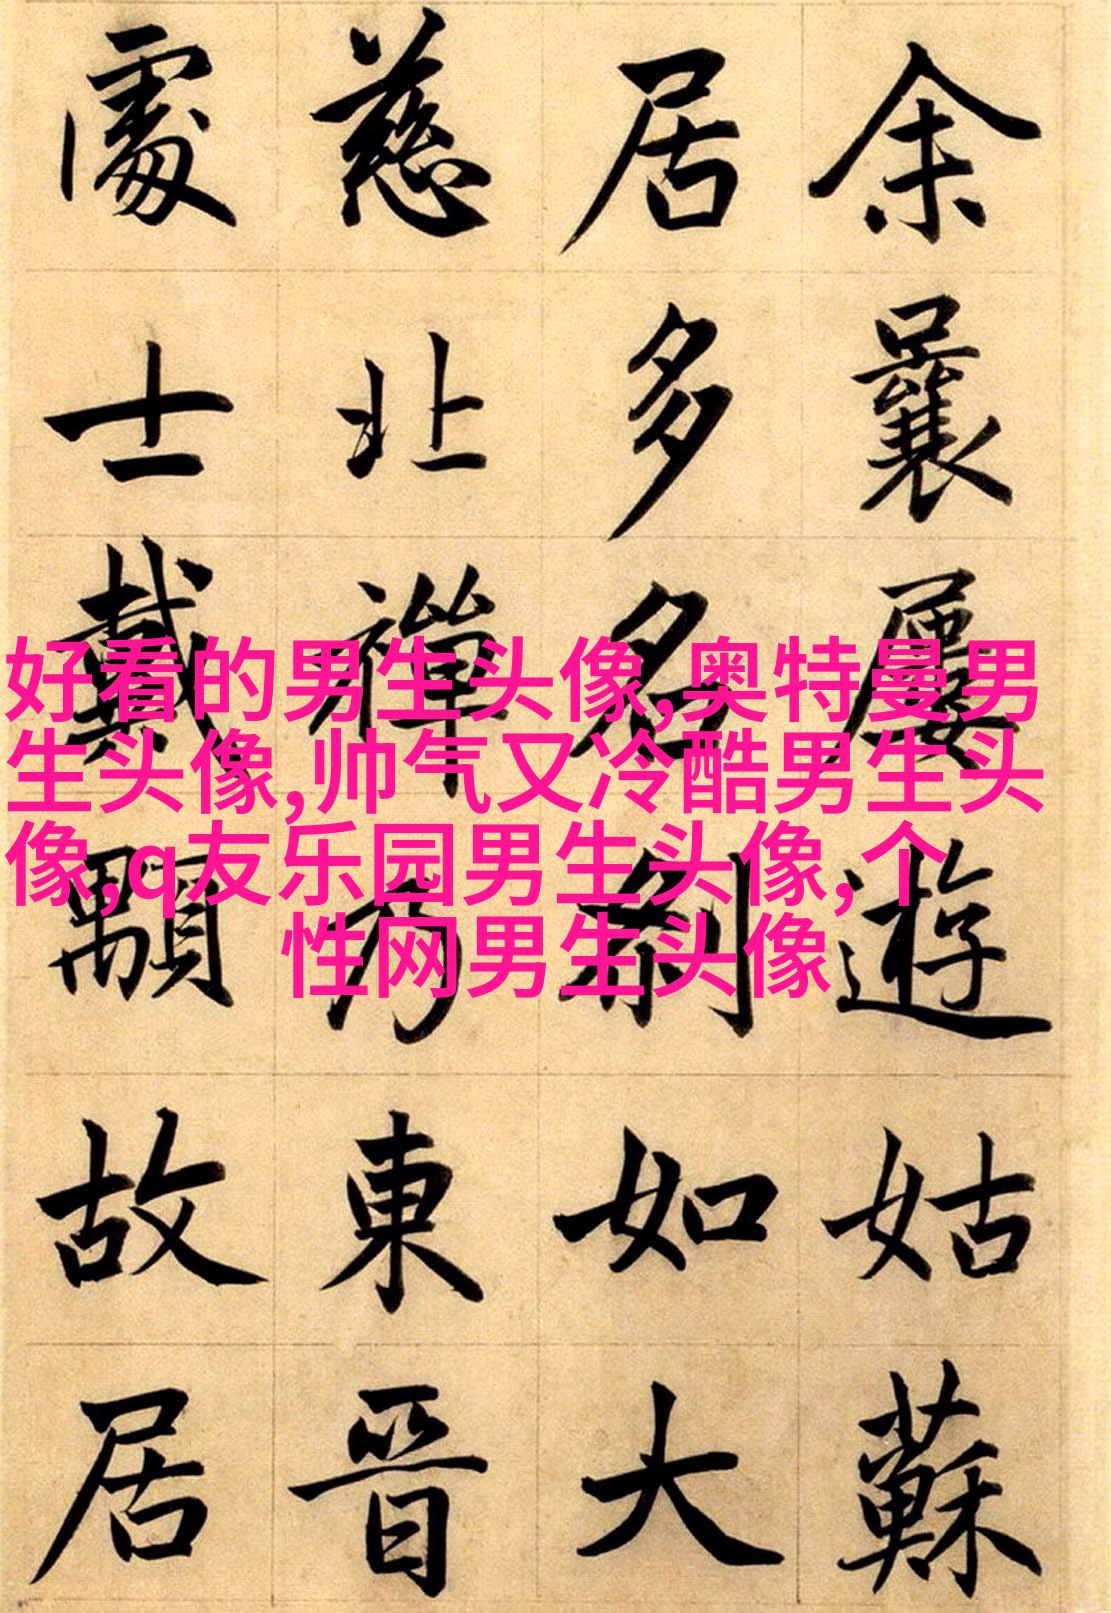 余曩屢遊姑蘇
居多名剎如大
慈北禪乃東晉
處士戴顒故居
好看的男生头像,奥特曼男
生头像,帅气又冷酷男生头
像,q友乐园男生头像,个
性网男生头像